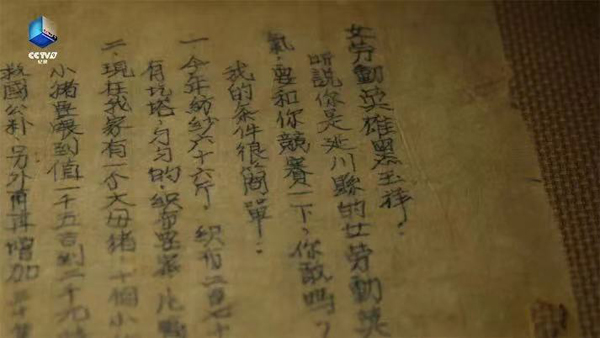 CCTV9
纪录
女劳動英雄黑玉祥：
听說你是延川縣的女劳動英
氣，要和你競賽一下，你敢嗎？
我的条件很簡單：
一 今年紡纱六十六斤，織布二百七十
有圪塔，勻勻的，織布要密，比
二、現在我家有一个大母猪，十個小
小猪要喂到值一千五百到二千元
救國公粮，另外再增加